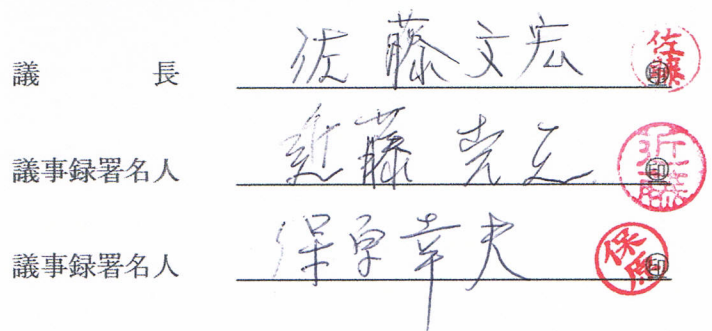 議長 佐藤文宏 佐藤 印
議事録署名人 近藤 近藤 印
議事録署名人 保原幸夫 保原 印